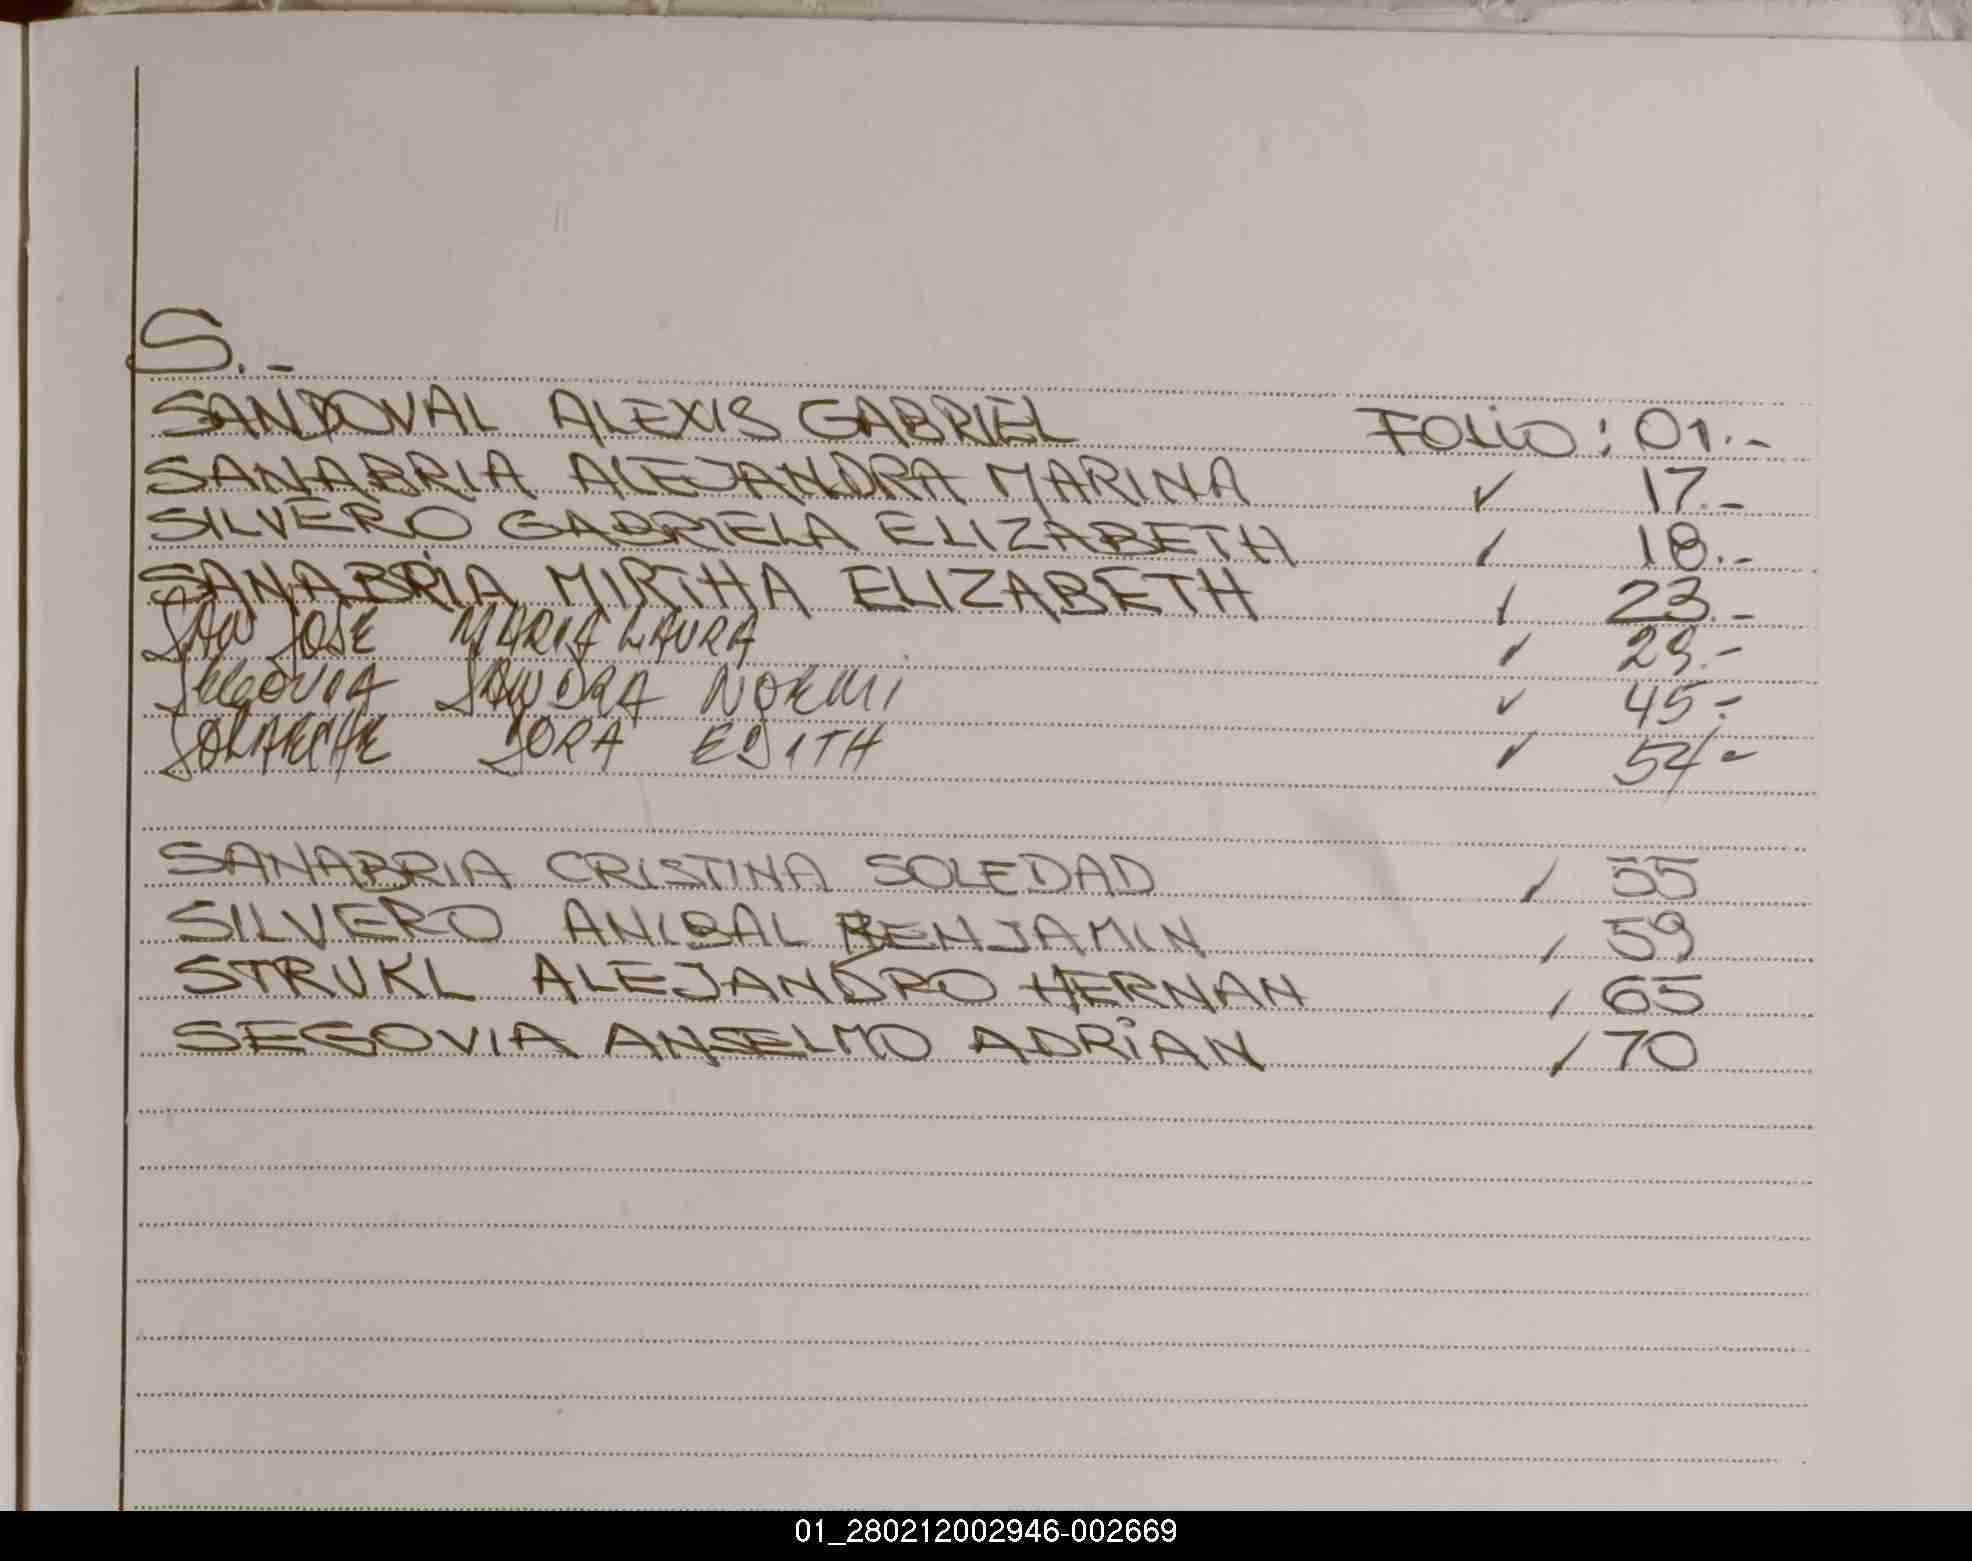 S.-
SANDOVAL ALEXIS GABRIEL FOLIO: 01.-
SANABRIA ALEJANDRA MARINA ✓ 17.-
SILVERO GABRIELA ELIZABETH ✓ 18.-
SANABRIA MIRTHA ELIZABETH ✓ 23.-
SAN JOSE MARIA LAURA ✓ 29.-
SEGOVIA SANDRA NOEMI ✓ 45.-
EDITH ✓ 54.-
SANABRIA CRISTINA SOLEDAD ✓ 55
SILVERO ANIBAL BENJAMIN ✓ 59
STRUKL ALEJANDRO HERNAN ✓ 65
SEGOVIA ANSELMO ADRIAN ✓ 70
01_280212002946-002669